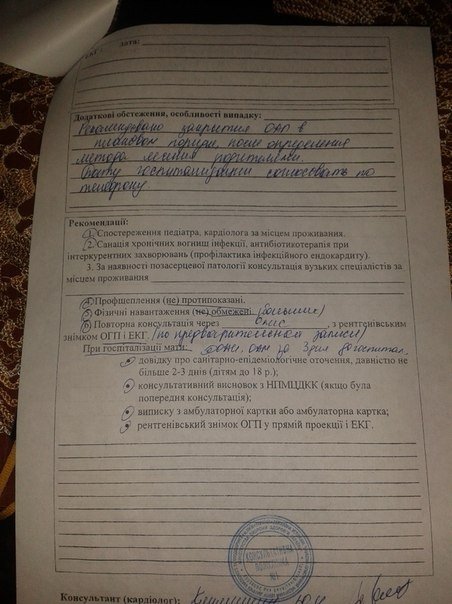 ЕКГ: дата:
Додаткові обстеження, особливості випадку:
Рекомендовано закрытия ОАП в
плановом порядке, после определения
метода лечения родителями.
Дату госпитализации согласовать по
телефону.
Рекомендації:
1. Спостереження педіатра, кардіолога за місцем проживання.
2. Санація хронічних вогниш інфекції, антибіотикотерапія при
інтеркурентних захворювань (профілактика інфекційного ендокардиту).
3. За наявності позасерцевої патології консультація вузьких спеціалістів за
місцем проживання
4. Профщеплення (не) протипоказані.
5. Фізичні навантаження (не) обмежені. (большие)
6. Повторна консультація через 6 мес , з рентгенівським
знімком ОГП і ЕКГ. (по предварительной записи)
При госпіталізації мати: ОАК, ОАМ за 3 дня до госпитал.
довідку про санітарно-епідемілогічне оточення, давністю не
більше 2-3 днів (дітям до 18 р.);
консультативний висновок з НПМЦДКК (якщо була
попередня консультація);
виписку з амбулаторної картки або амбулаторна картка;
рентгенівський знімок ОГП у прямій проекції і ЕКГ.
КОНСУЛЬТАТИВНА
ПОЛІКЛІНІКА
№1
Консультант (кардіолог):